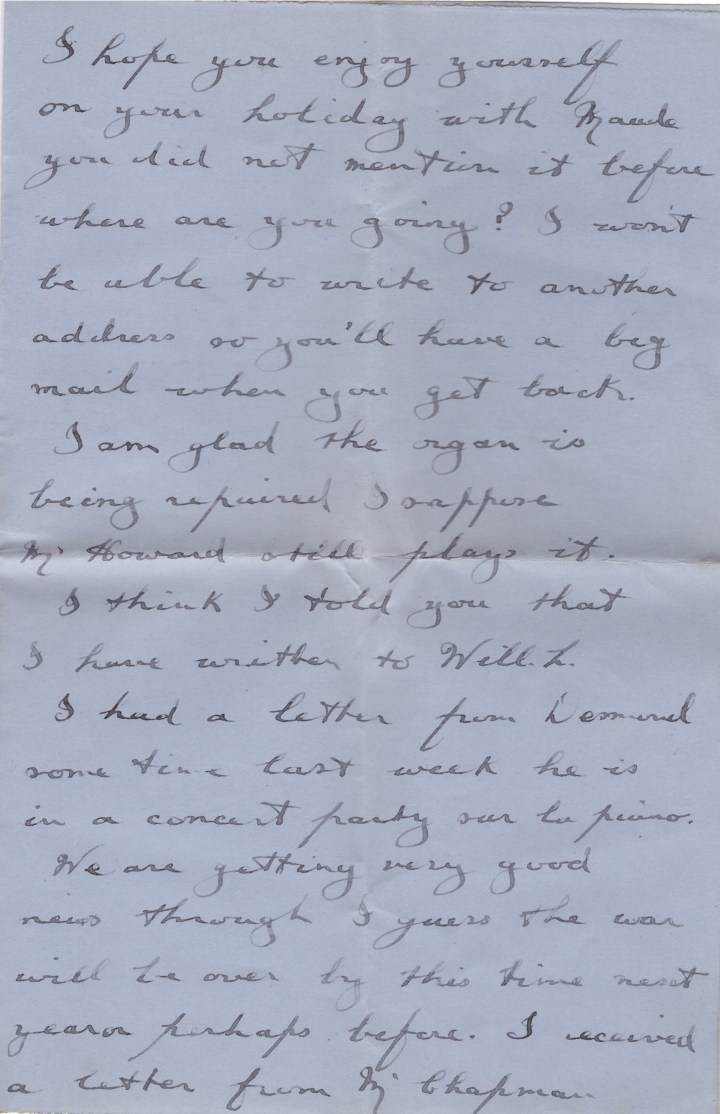 I hope you enjoy yourself
on your holiday with Maude
you did not mention it before
where are you going? I won't
be able to write to another
address so you'll have a big
mail when you get back.
I am glad the organ is
being repaired I suppose
Mr Howard still plays it.
I think I told you that
I have written to Will. L.
I had a letter from Desmond
some time last week he is
in a concert party sur la piano.
We are getting very good
news through I guess the war
will be over by this time next
year or perhaps before. I received
a letter from Mr Chapman